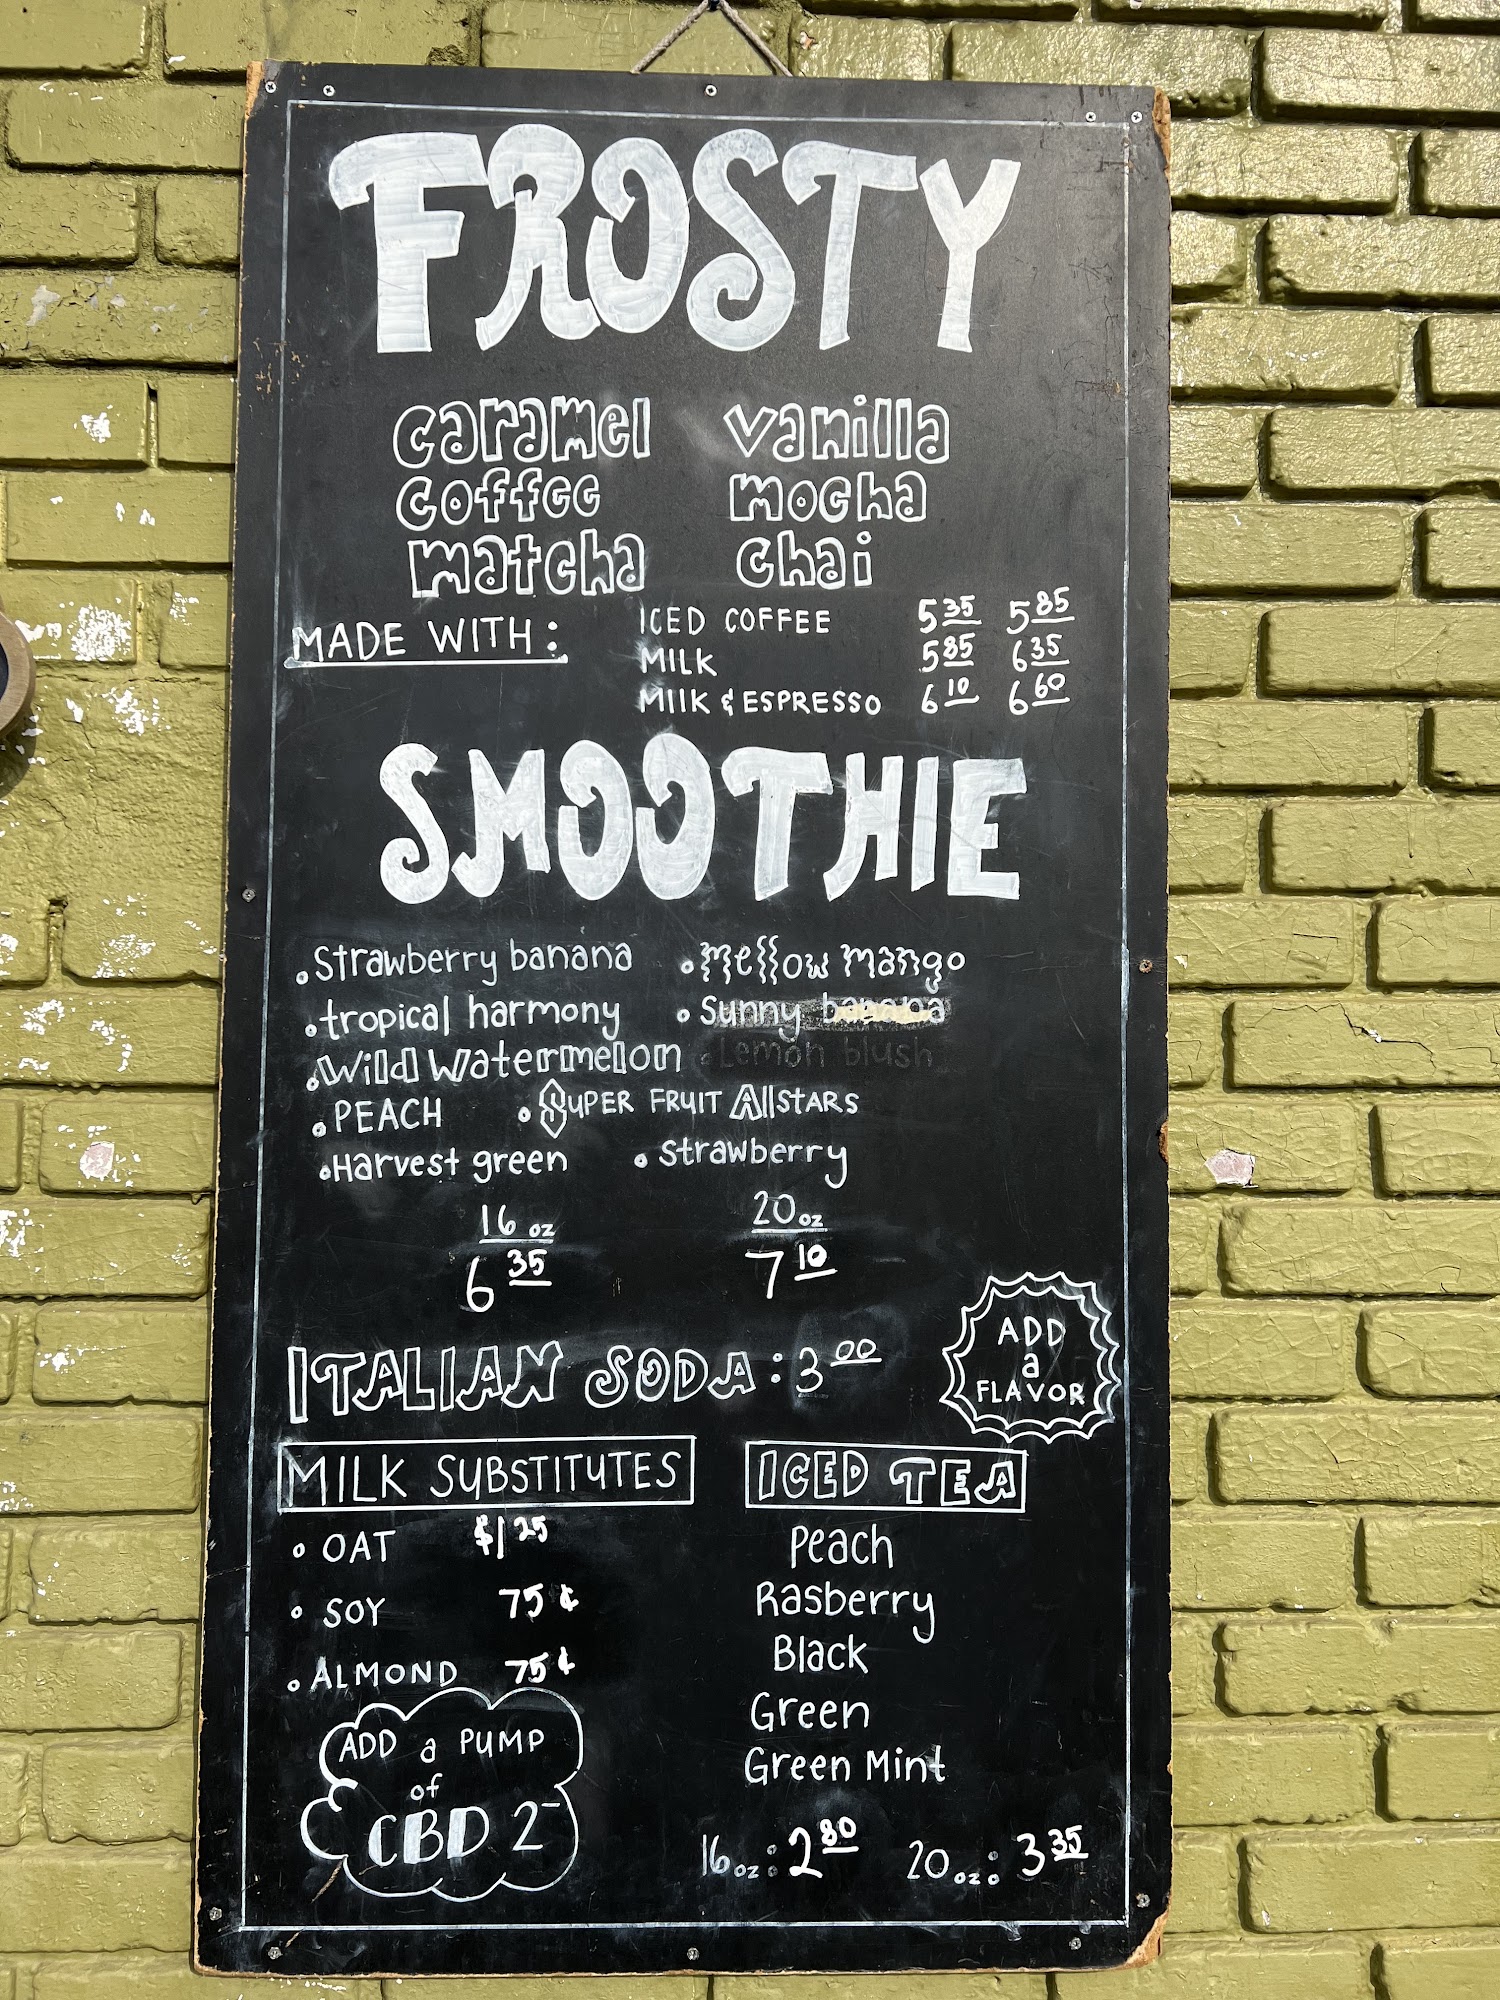 FROSTY
caramel vanilla
coffee mocha
matcha chai
MADE WITH: ICED COFFEE 5 35 5 85
MILK 5 85 6 35
MilK & ESPRESSO 6 10 6 60
SMOOTHIE
• Strawberry banana • Mellow Mango
• tropical harmony • Sunny banana
• Wild Watermelon • Lemon blush
• PEACH • SuPER FRUIT AllstARS
• Harvest green • Strawberry
16 oz 20 oz
6 35 7 10
ITALIAN SODA: 3 00
ADD
a
FLAVOR
MILK SUBSTITUTES
• OAT $1 25
• SOY 75¢
• ALMOND 75¢
ADD a PUMP
of
CBD 2-
ICED TEA
Peach
Rasberry
Black
Green
Green Mint
16 oz: 2 80 20 oz: 3 35